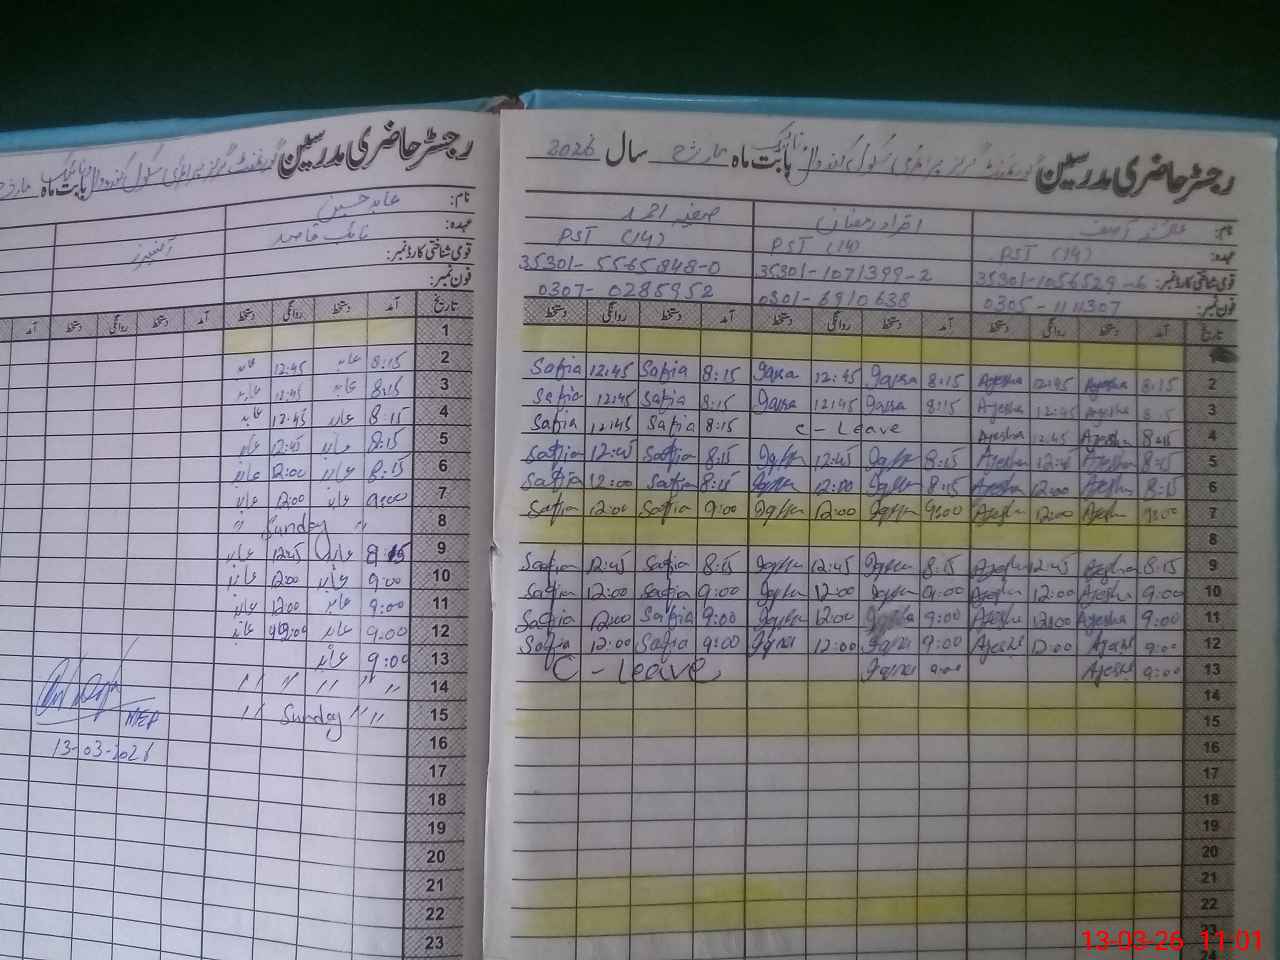 رجسٹر حاضری مدرسین گورنمنٹ گرلز پرائمری سکول بابت ماہ مارچ سال 2026
نام: عائشہ آصف اقراء رمضان صفیہ احمد
عہدہ: PST (14) PST (14) PST (14)
قومی شناختی کارڈ نمبر: 35301-1056529-6 35301-1071399-2 35301-5565848-0
فون نمبر: 0305-1111307 0301-6910638 0307-0285952
تاریخ آمد دستخط روانگی دستخط آمد دستخط روانگی دستخط آمد دستخط روانگی دستخط
2 8:15 Ayesha 12:45 Ayesha 8:15 Iqra 12:45 Iqra 8:15 Safia 12:45 Safia
3 8:15 Ayesha 12:45 Ayesha 8:15 Iqra 12:45 Iqra 8:15 Safia 12:45 Safia
4 8:15 Ayesha 12:45 Ayesha C - Leave 8:15 Safia 12:45 Safia
5 8:15 Ayesha 12:45 Ayesha 8:15 Iqra 12:45 Iqra 8:15 Safia 12:45 Safia
6 8:15 Ayesha 12:00 Ayesha 8:15 Iqra 12:00 Iqra 8:15 Safia 12:00 Safia
7 9:00 Ayesha 12:00 Ayesha 9:00 Iqra 12:00 Iqra 9:00 Safia 12:00 Safia
8
9 8:15 Ayesha 12:45 Ayesha 8:15 Iqra 12:45 Iqra 8:15 Safia 12:45 Safia
10 9:00 Ayesha 12:00 Ayesha 9:00 Iqra 12:00 Iqra 9:00 Safia 12:00 Safia
11 9:00 Ayesha 12:00 Ayesha 9:00 Iqra 12:00 Iqra 9:00 Safia 12:00 Safia
12 9:00 Ayesha 12:00 Ayesha 9:00 Iqra 12:00 Iqra 9:00 Safia 12:00 Safia
13 9:00 Ayesha 9:00 Iqra C - Leave
14
15
16
17
18
19
20
21
22
23
24
رجسٹر حاضری مدرسین گورنمنٹ گرلز پرائمری سکول بابت ماہ مارچ
نام: عابد حسین
عہدہ: نائب قاصد
قومی شناختی کارڈ نمبر:
فون نمبر:
تاریخ آمد دستخط روانگی دستخط آمد دستخط روانگی دستخط آمد
1
2 8:15 عابد 12:45 عابد
3 8:15 عابد 12:45 عابد
4 8:15 عابد 12:45 عابد
5 8:15 عابد 12:45 عابد
6 8:15 عابد 12:00 عابد
7 9:00 عابد 12:00 عابد
8 " Sunday "
9 8:15 عابد 12:45 عابد
10 9:00 عابد 12:00 عابد
11 9:00 عابد 12:00 عابد
12 9:00 عابد 12:00 عابد
13 9:00 عابد
14 " " " " "
15 " Sunday " "
16
17
18
19
20
21
22
23
13-03-2026
13-03-26 11:01